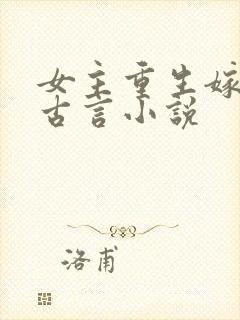 女主重生嫁
古言小说
洛甫